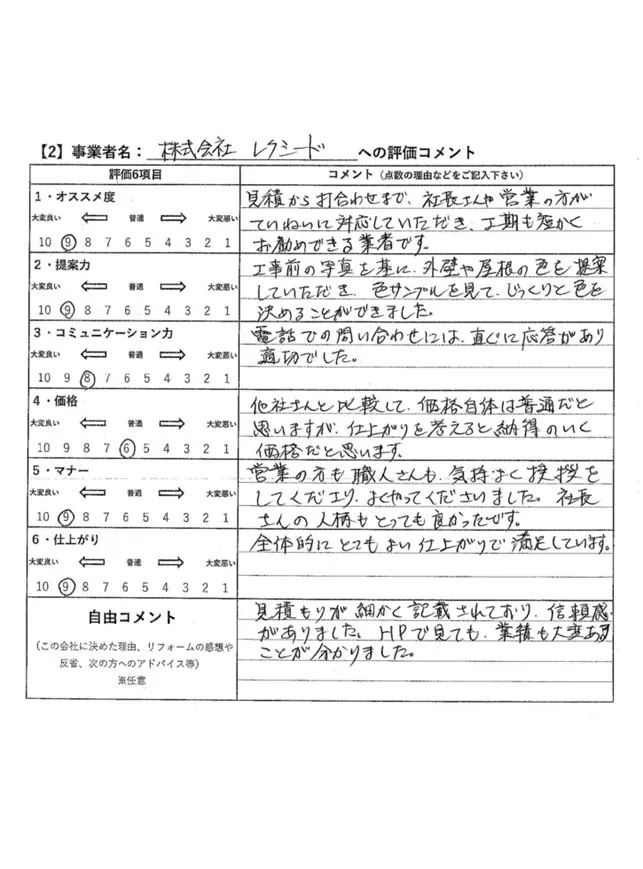 【2】事業者名: 株式会社 レクシード への評価コメント
評価6項目
コメント（点数の理由などをご記入下さい）
1・オススメ度
大変良い 普通 大変悪い
10 9 8 7 6 5 4 3 2 1
見積から打合わせまで、社長さんや営業の方が
ていねいに対応していただき、工期も短かく
お勧めできる業者です。
2・提案力
大変良い 普通 大変悪い
10 9 8 7 6 5 4 3 2 1
工事前の写真を基に、外壁や屋根の色を提案
していただき、色サンプルを見て、じっくりと色を
決めることができました。
3・コミュニケーション力
大変良い 普通 大変悪い
10 9 8 7 6 5 4 3 2 1
電話での問い合わせには、直ぐに応答があり
適切でした。
4・価格
大変良い 普通 大変悪い
10 9 8 7 6 5 4 3 2 1
他社さんと比較して、価格自体は普通だと
思いますが、仕上がりを考えると納得のいく
価格だと思います。
5・マナー
大変良い 普通 大変悪い
10 9 8 7 6 5 4 3 2 1
営業の方も職人さんも、気持よく挨拶を
してくださり、よくやってくださいました。社長
さんの人柄もとっても良かったです。
6・仕上がり
大変良い 普通 大変悪い
10 9 8 7 6 5 4 3 2 1
全体的にとてもよい仕上がりで満足しています。
自由コメント
（この会社に決めた理由、リフォームの感想や
反省、次の方へのアドバイス等）
※任意
見積もりが細かく記載されており、信頼感
がありました。HPで見ても、業績も大変ある
ことが分かりました。